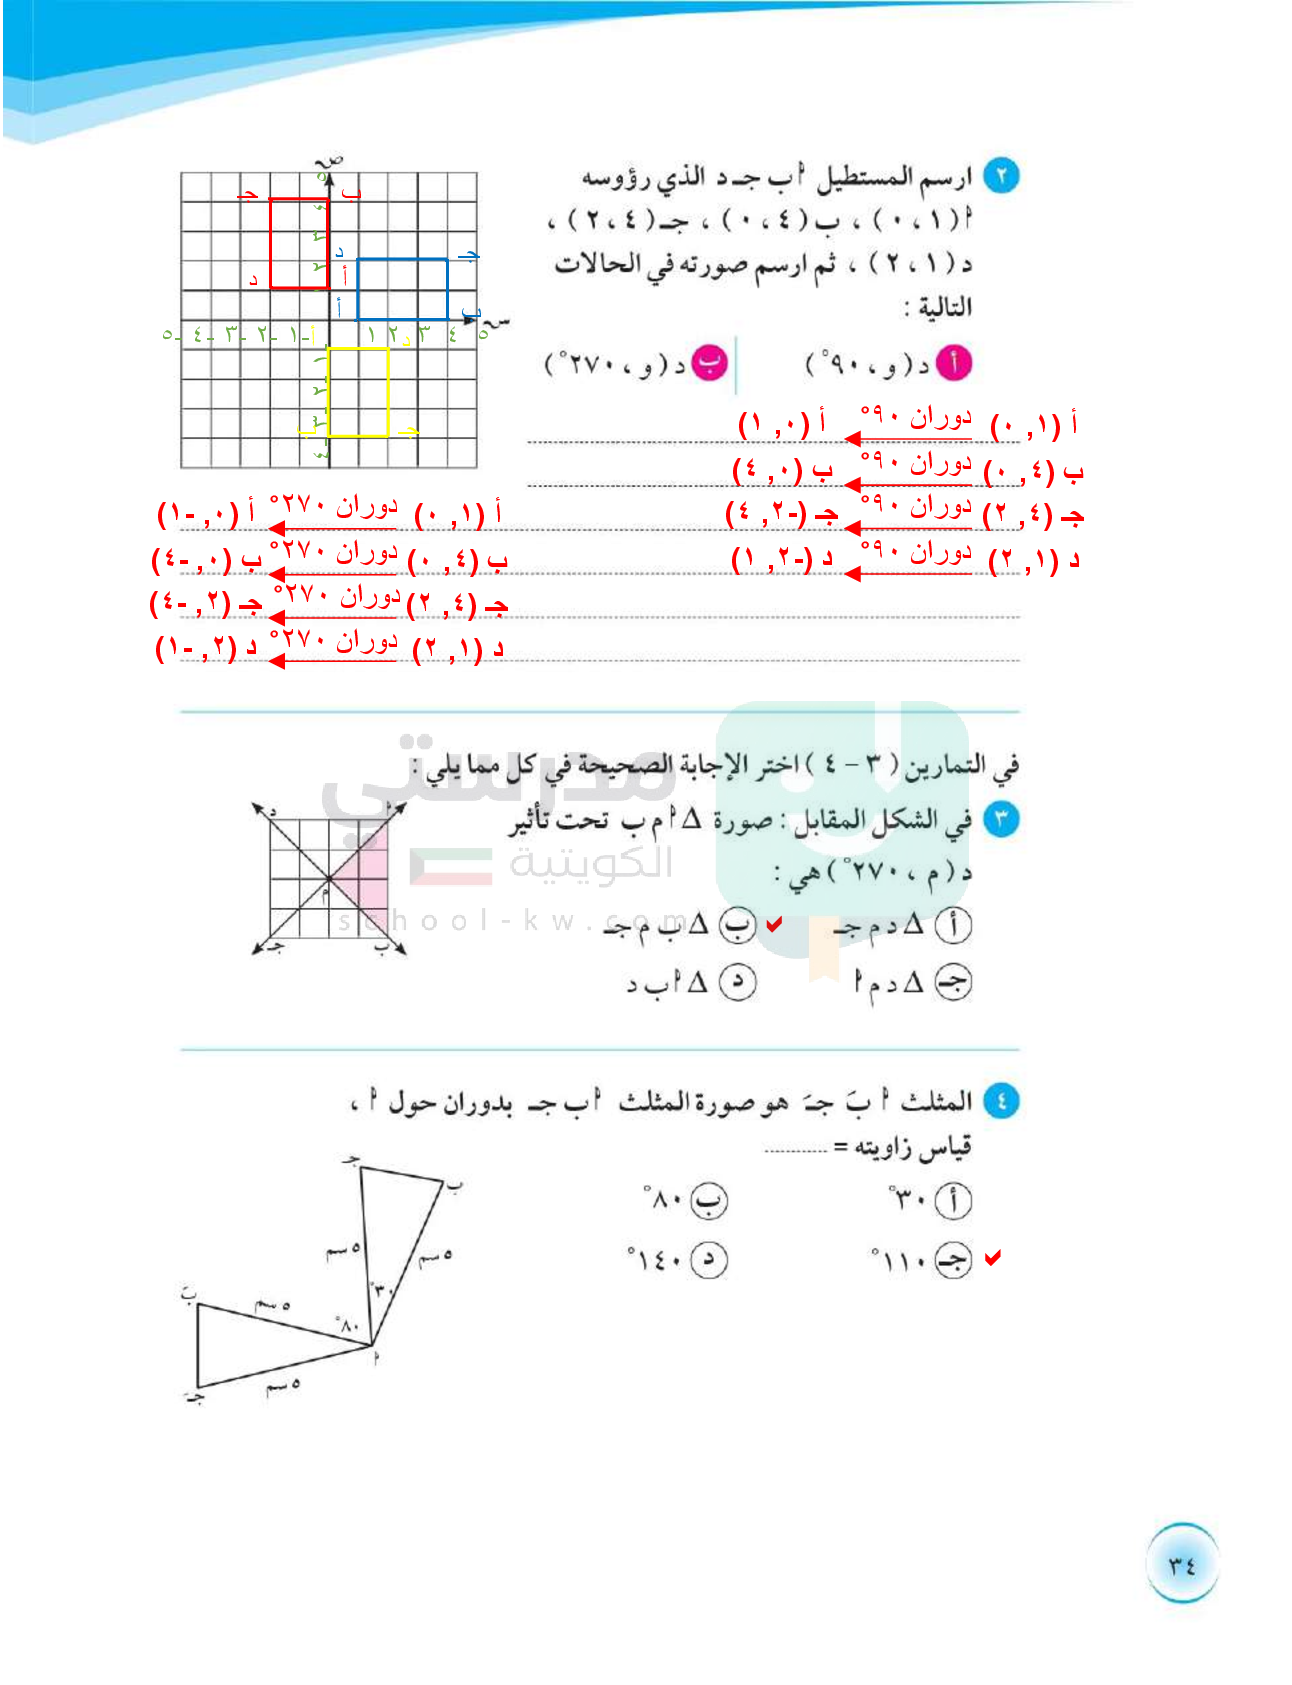 ٢ ارسم المستطيل أ ب جـ د الذي رؤوسه
أ ( ١ ، ٠ ) ، ب ( ٤ ، ٠ ) ، جـ ( ٤ ، ٢ ) ،
د ( ١ ، ٢ ) ، ثم ارسم صورته في الحالات
التالية :
أ د ( و ، ٩٠° ) ب د ( و ، ٢٧٠° )
ص
ب جـ
٥ ٤ ٣ ٢
د أ
د جـ
أ ب
س
٥- ٤- ٣- ٢- ١- ١ ٢ ٣ ٤ ٥
أ د
١- ٢- ٣- ٤-
ب جـ
أ (١, ٠) دوران ٩٠° أ (٠, ١)
ب (٤, ٠) دوران ٩٠° ب (٠, ٤)
جـ (٤, ٢) دوران ٩٠° جـ (-٢, ٤)
د (١, ٢) دوران ٩٠° د (-٢, ١)
أ (١, ٠) دوران ٢٧٠° أ (٠, -١)
ب (٤, ٠) دوران ٢٧٠° ب (٠, -٤)
جـ (٤, ٢) دوران ٢٧٠° جـ (٢, -٤)
د (١, ٢) دوران ٢٧٠° د (٢, -١)
مدرستي
الكويتية
school-kw.com
في التمارين ( ٣ - ٤ ) اختر الإجابة الصحيحة في كل مما يلي :
٣ في الشكل المقابل : صورة Δ أ م ب تحت تأثير
د ( م ، ٢٧٠° ) هي :
أ Δ د م جـ ب Δ ب م جـ
جـ Δ د م أ د Δ أ ب د
أ د
م
ب جـ
٤ المثلث أ بَ جـَ هو صورة المثلث أ ب جـ بدوران حول أ ،
قياس زاويته = ............
أ ٣٠° ب ٨٠°
جـ ١١٠° د ١٤٠°
جـ
ب
٥ سم
٥ سم
٣٠°
بَ
٥ سم
٨٠°
أ
٥ سم
جـَ
٣٤